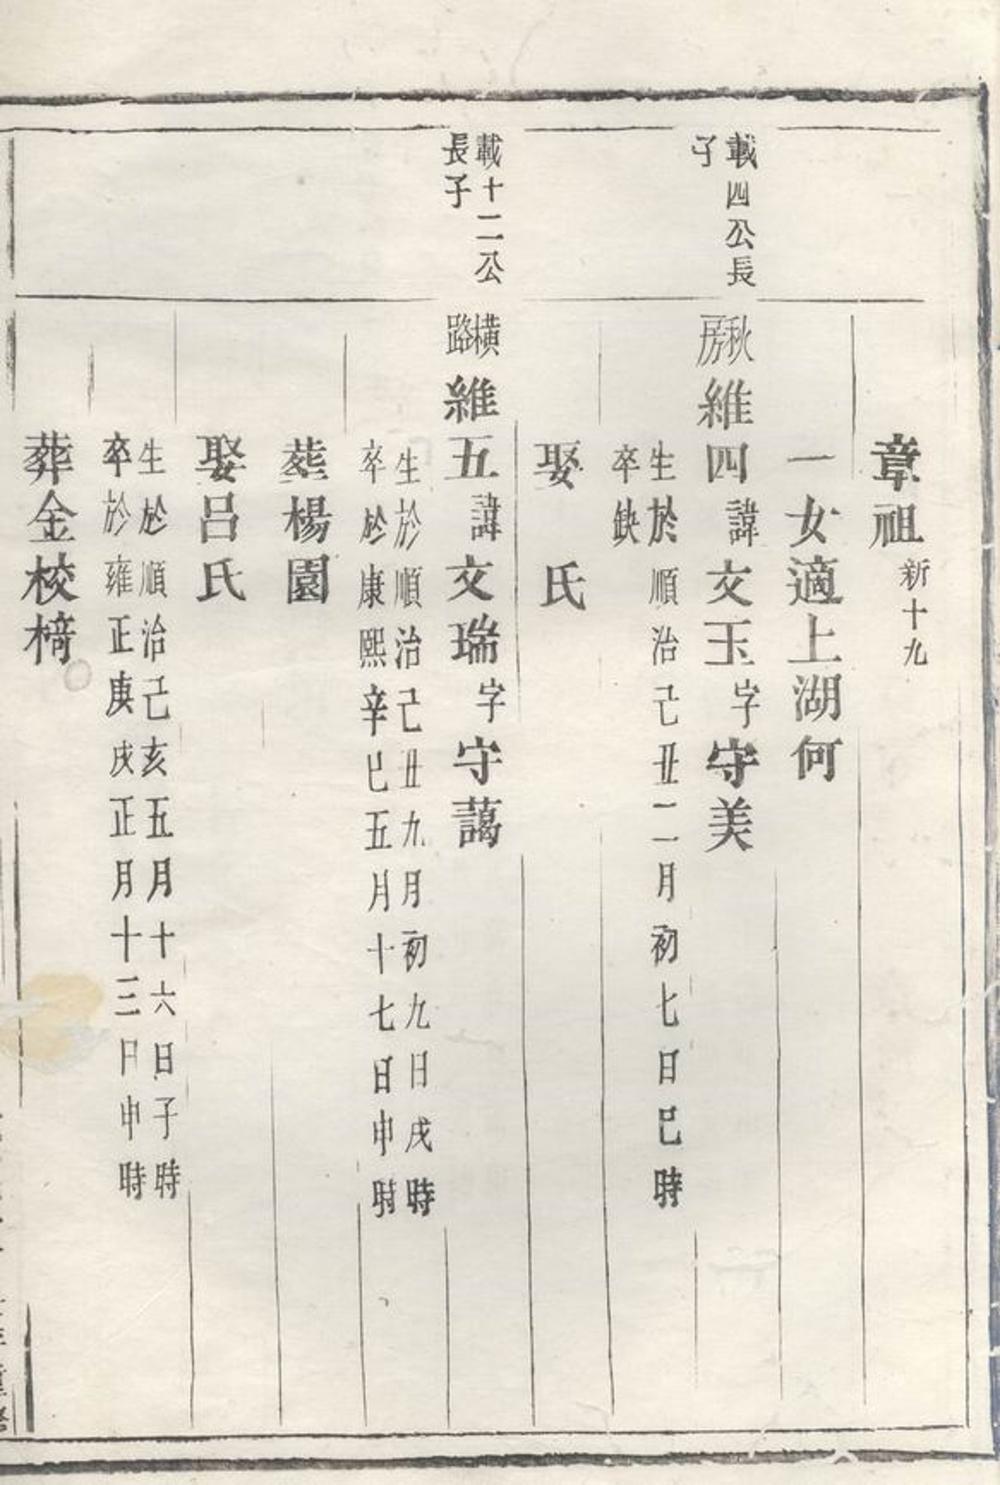 章祖新十九
一女適上湖何
載四公長
子
秋房維四諱文玉字守美
生於順治己丑二月初七日巳時
卒缺
娶　氏
載十二公
長子
橫路維五諱文瑞字守藹
生於順治己丑九月初九日戌時
卒於康熙辛巳五月十七日申時
葬楊園
娶呂氏
生於順治己亥五月十六日子時
卒於雍正庚戌正月十三日申時
葬金校楕